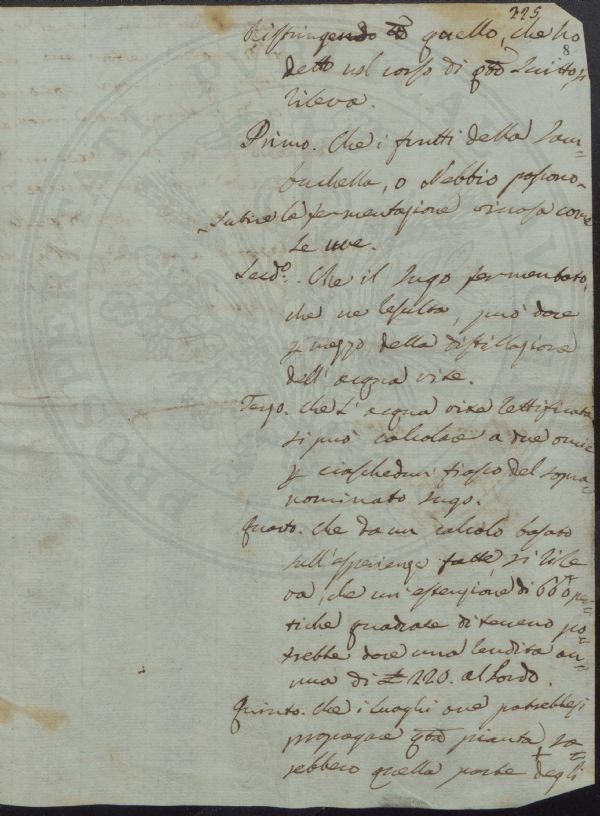 225
8
Ristringendo to quello, che ho
detto nel corso di qto Scritto, si
rileva.
Primo. Che i frutti della Sam=
buchella, o Nebbio possono
subire la fermentazione vinosa come
le uve.
Secdo. Che il sugo fermentato,
che ne resulta, può dare
p mezzo della distillazione
dell'acqua vite.
Terzo. che l'acqua vite rettificata
si può calcolare a due oncie
p ciaschedun fiasco del sopra=
nominato sugo.
Quarto. che da un calcolo basato
sull'esperienze fatte, si rile
va, che un'estenzione di 660 per=
tiche quadrate di terreno po=
trebbe dare una rendita an=
nua di £ 220. al lordo.
Quinto. che i luoghi ove potrebbesi
propagare qta pianta sa=
rebbero quella parte degli